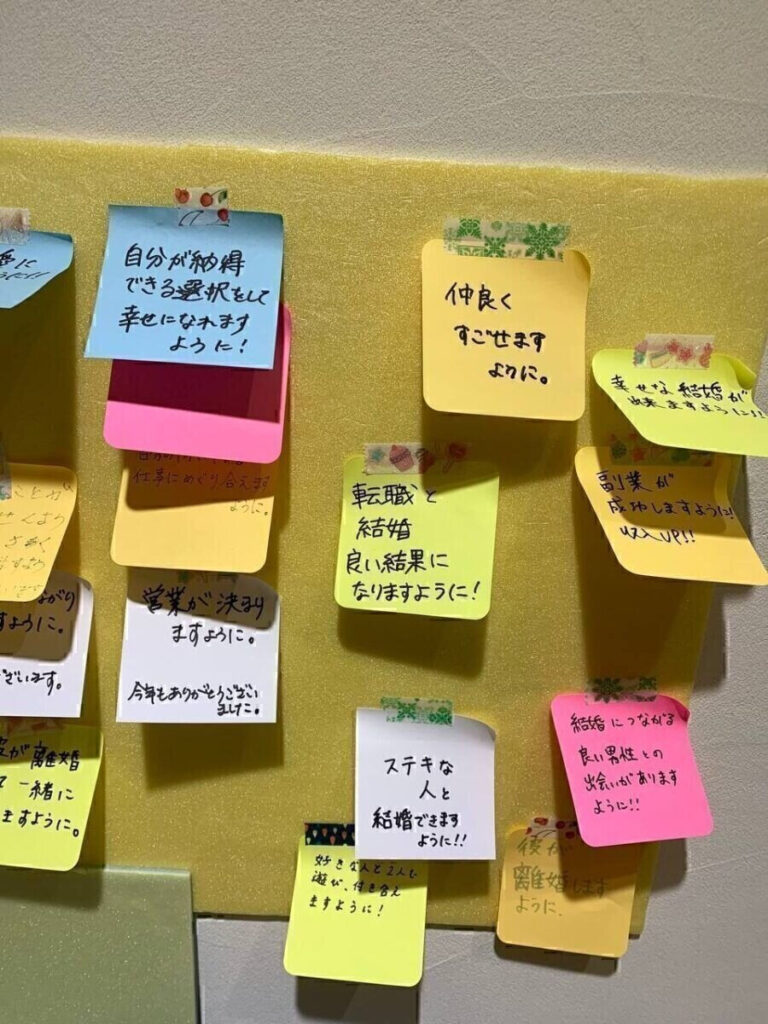 自分が納得
できる選択をして
幸せになれます
ように!
仲良く
すごせます
ように。
幸せな結婚が
出来ますように!!
転職と
結婚
良い結果に
なりますように!
副業が
成功しますように!
収入UP!!
仕事にめぐり合えます
ように。
営業が決まり
ますように。
今年もありがとうござい
ました。
ように。
ざいます。
離婚
一緒に
ますように。
ステキな
人と
結婚できます
ように!!
結婚につながる
良い男性との
出会いがあります
ように!!
好きな人と2人で
遊び、付き合え
ますように!
彼が
離婚します
ように.